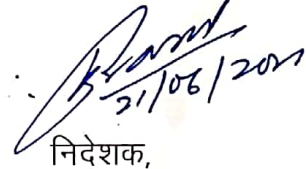 21/06/2021
निदेशक,